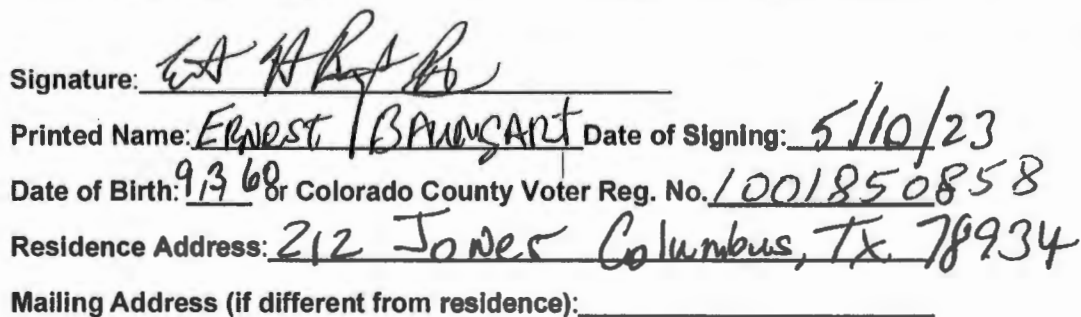 Signature:
Printed Name: ERNEST BAUMGART Date of Signing: 5/10/23
Date of Birth: 9/3 60 or Colorado County Voter Reg. No. 1001850858
Residence Address: 212 Jones Columbus, TX. 78934
Mailing Address (if different from residence):